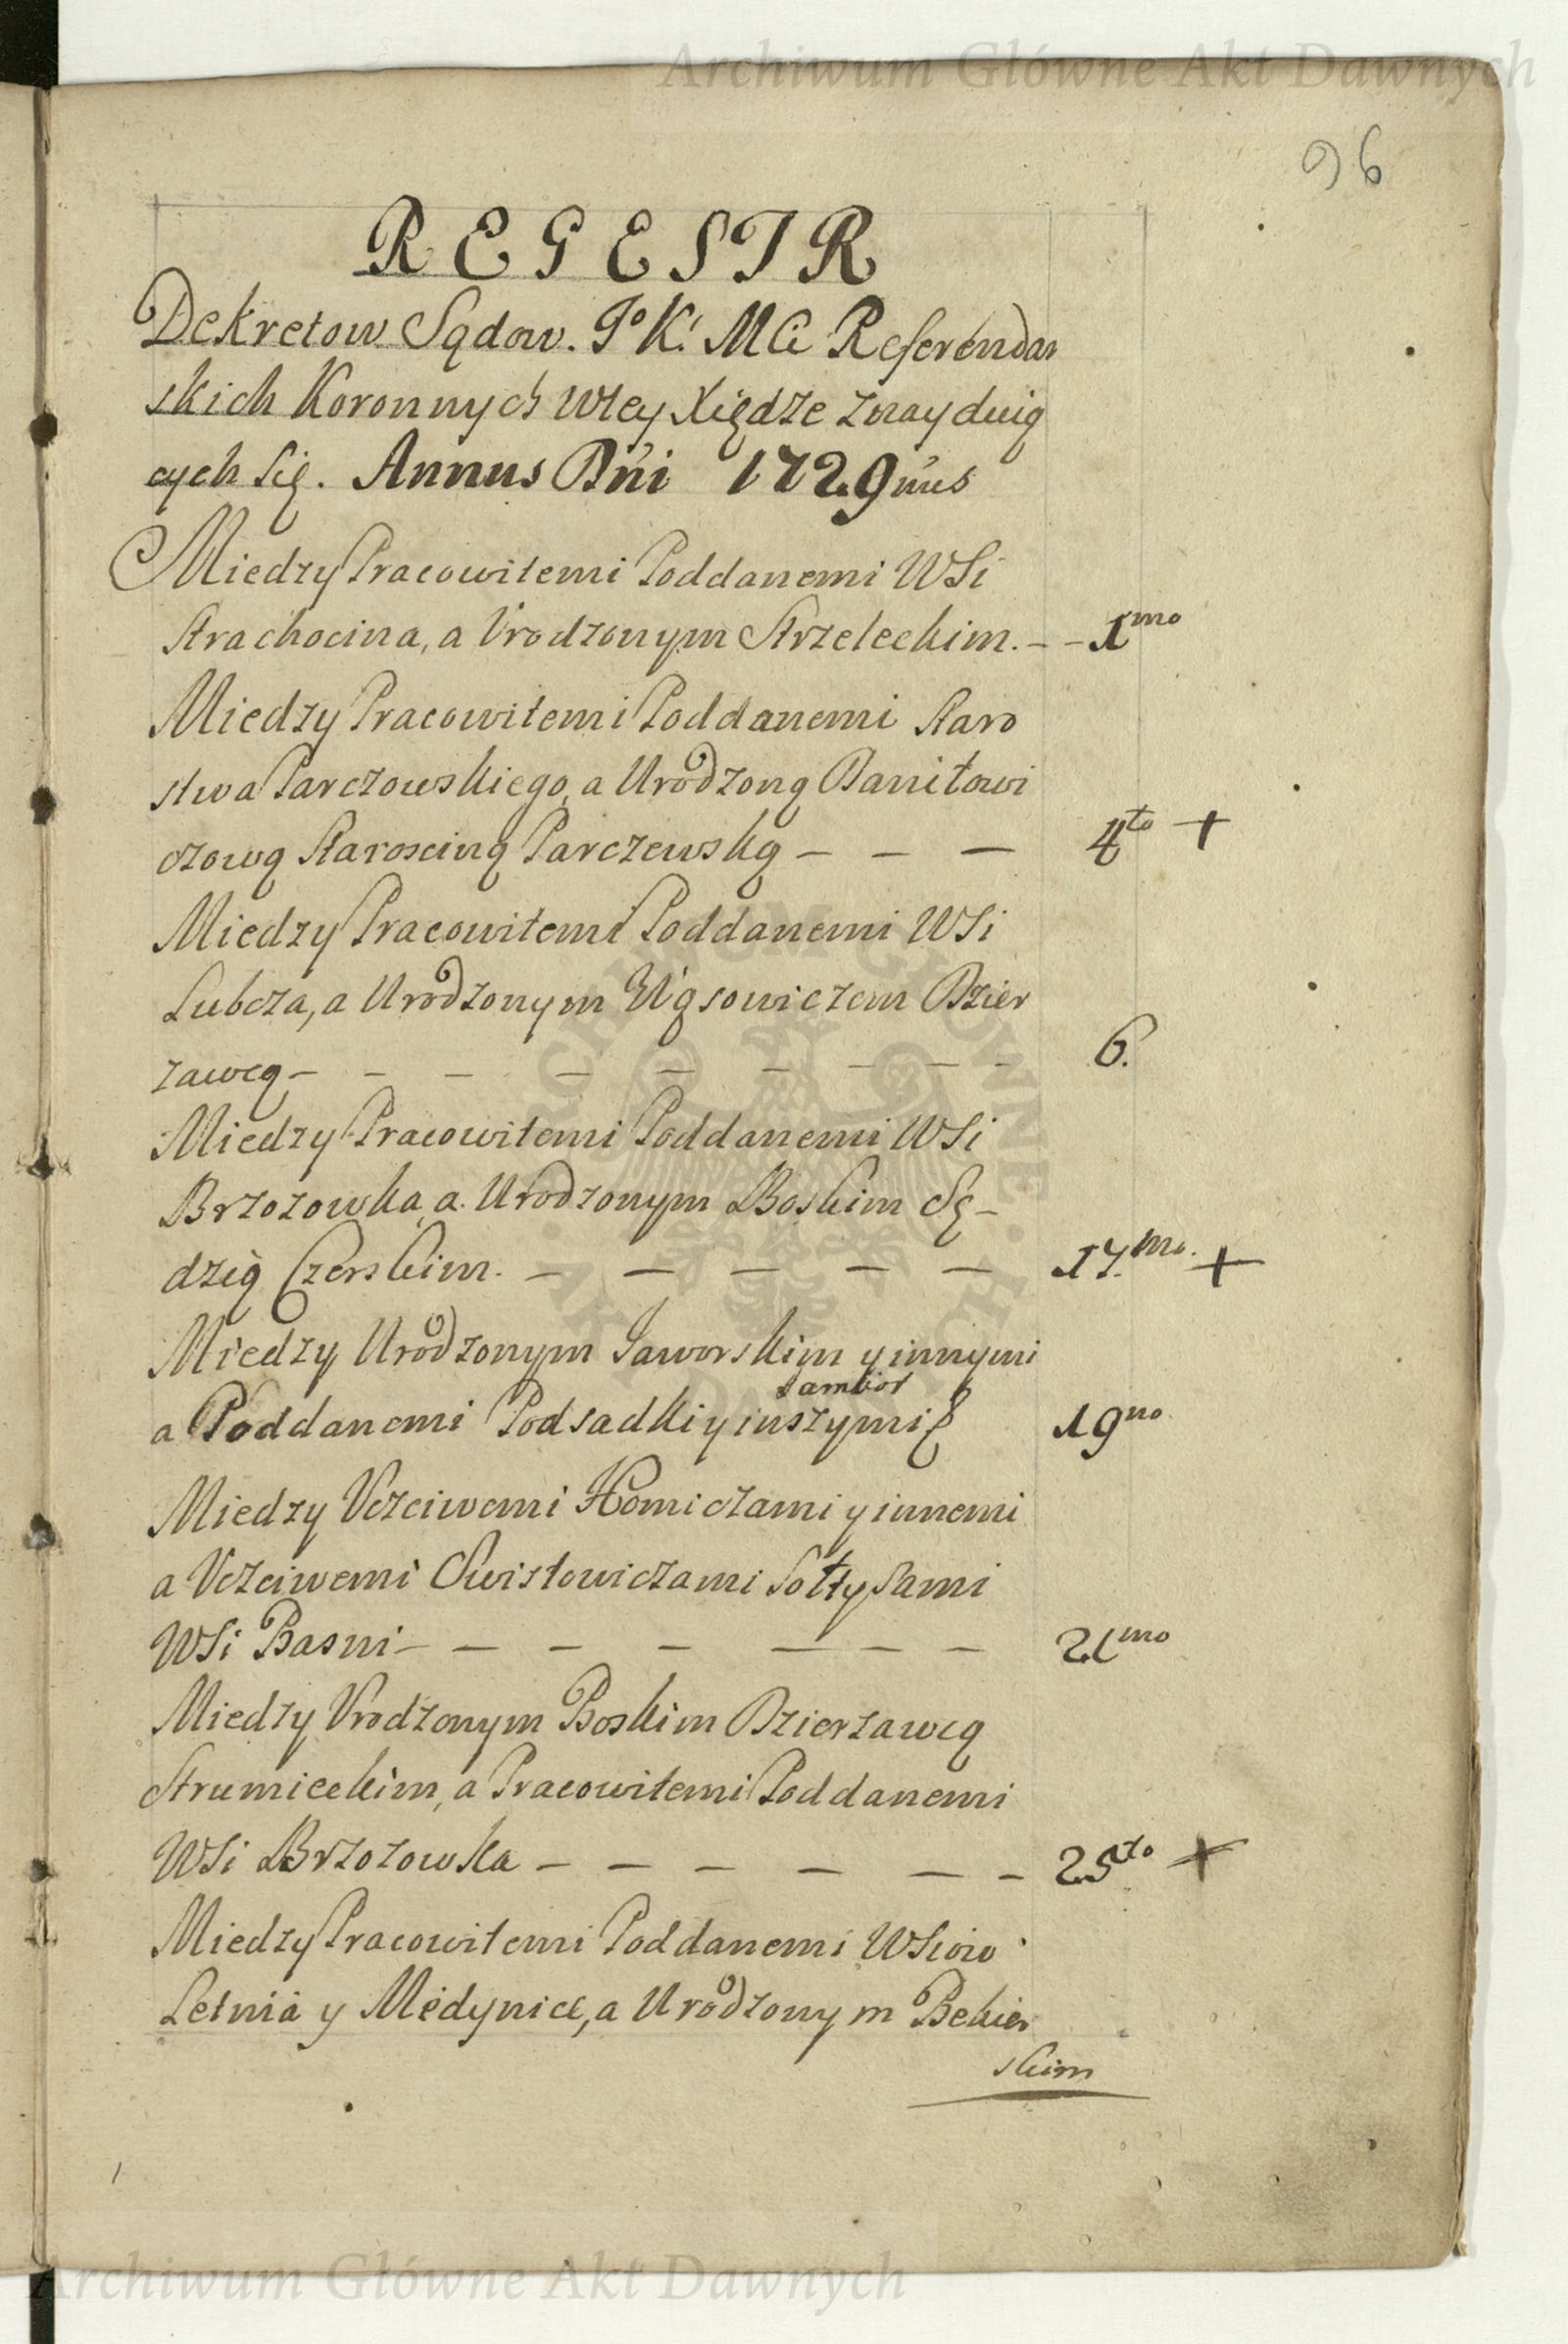 Archiwum Główne Akt Dawnych
96
REGESTR
Dekretow Sądow. Jº K. MCi Referendar
skich Koronnych Wtey Xiędze znayduią
cych Się. Annus Dńi 1729nus
Miedzy Pracowitemi Poddanemi WSi
Strachocina, a Vrodzonym Strzeleckim. - - 1mo
Miedzy Pracowitemi Poddanemi Staro
stwa Parczowskiego, a Urodzoną Daniłowi
czową Starościną Parczewską - - - 4to +
Miedzy Pracowitemi Poddanemi WSi
Lubcza, a Urodzonym Wąsowiczem Dzier
zawcą - - - - - - - - - 6.
Miedzy Pracowitemi Poddanemi WSi
Brzozowka, a Urodzonym Boskim Sę-
dzią Czerskim. - - - - - 17mo. +
Miedzy Urodzonym Jaworskim y innymi
Sambor
a Poddanemi Podsadki y inszymi 19no
Miedzy Vczciwemi Homiczami y innemi
a Vczciwemi Swistowiczami Sołtysami
WSi Basni - - - - - - - 21mo
Miedzy Vrodzonym Boskim Dzierzawcą
Strumieckim, a Pracowitemi Poddanemi
WSi Brzozowka - - - - - - 25to +
Miedzy Pracowitemi Poddanemi WSiow
Letnia y Medynice, a Urodzonym Bekier
skim
Archiwum Główne Akt Dawnych